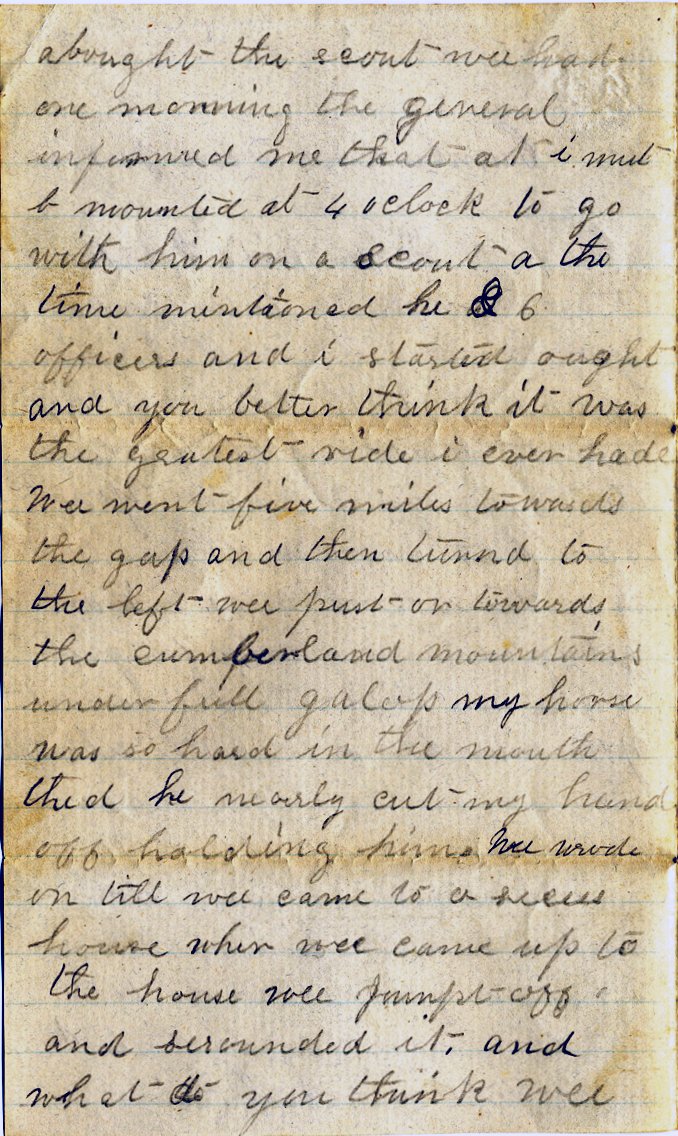 abought the scout wee had
one morning the general
informed me that at i must
b mounted at 4 oclock to go
with him on a scout a the
time mintioned he & 6
officers and i started ought
and you better think it was
the greatest ride i ever hade
Wee went five miles towards
the gap and then turnd to
the left wee pust on towards
the cumberland mountains
under full galop my horse
was so hard in the mouth
thed he nearly cut my hand
off holding him. Wee wrode
on till wee came to a seces
house wher wee came up to
the house wee jumpt off
and serounded it. and
what do you think wee